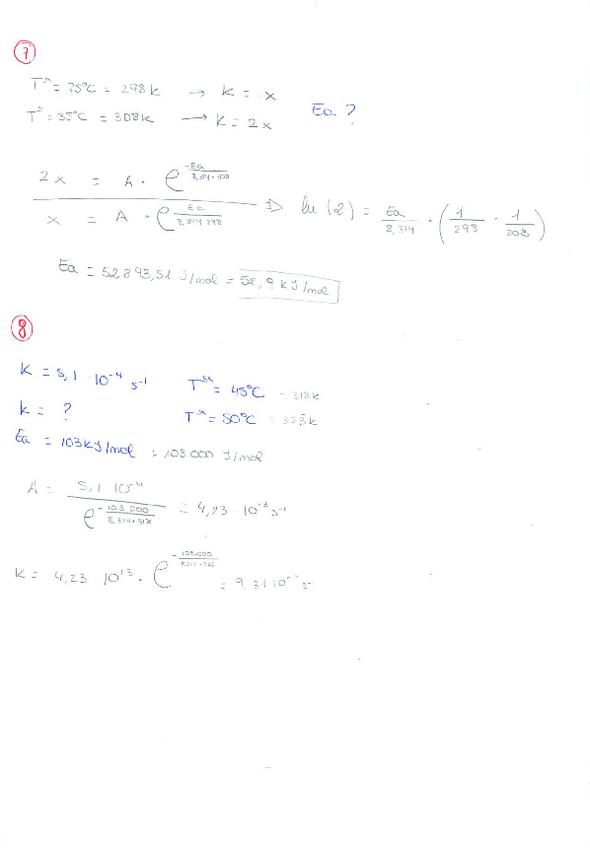 7
Tª = 25ºC = 298 K → K = x
Ea ?
Tª = 35ºC = 308 K → K = 2x
2x = A · e^(-Ea / 8,314 · 308)
x = A · e^(Ea / 8,314 · 298)
⇒ ln(2) = Ea / 8,314 · (1/298 - 1/308)
Ea = 52893,51 J/mol = 52,9 kJ/mol
8
K = 5,1 · 10^-4 s^-1 Tª = 45ºC = 318 K
k = ? Tª = 50ºC = 323 K
Ea = 103 kJ/mol = 103.000 J/mol
A = 5,1 · 10^-4 / e^(-103.000 / 8,314 · 318) = 4,23 · 10^-3 s^-1
K = 4,23 · 10^13 · e^(-103.000 / 8,314 · 323) = 9,31 10